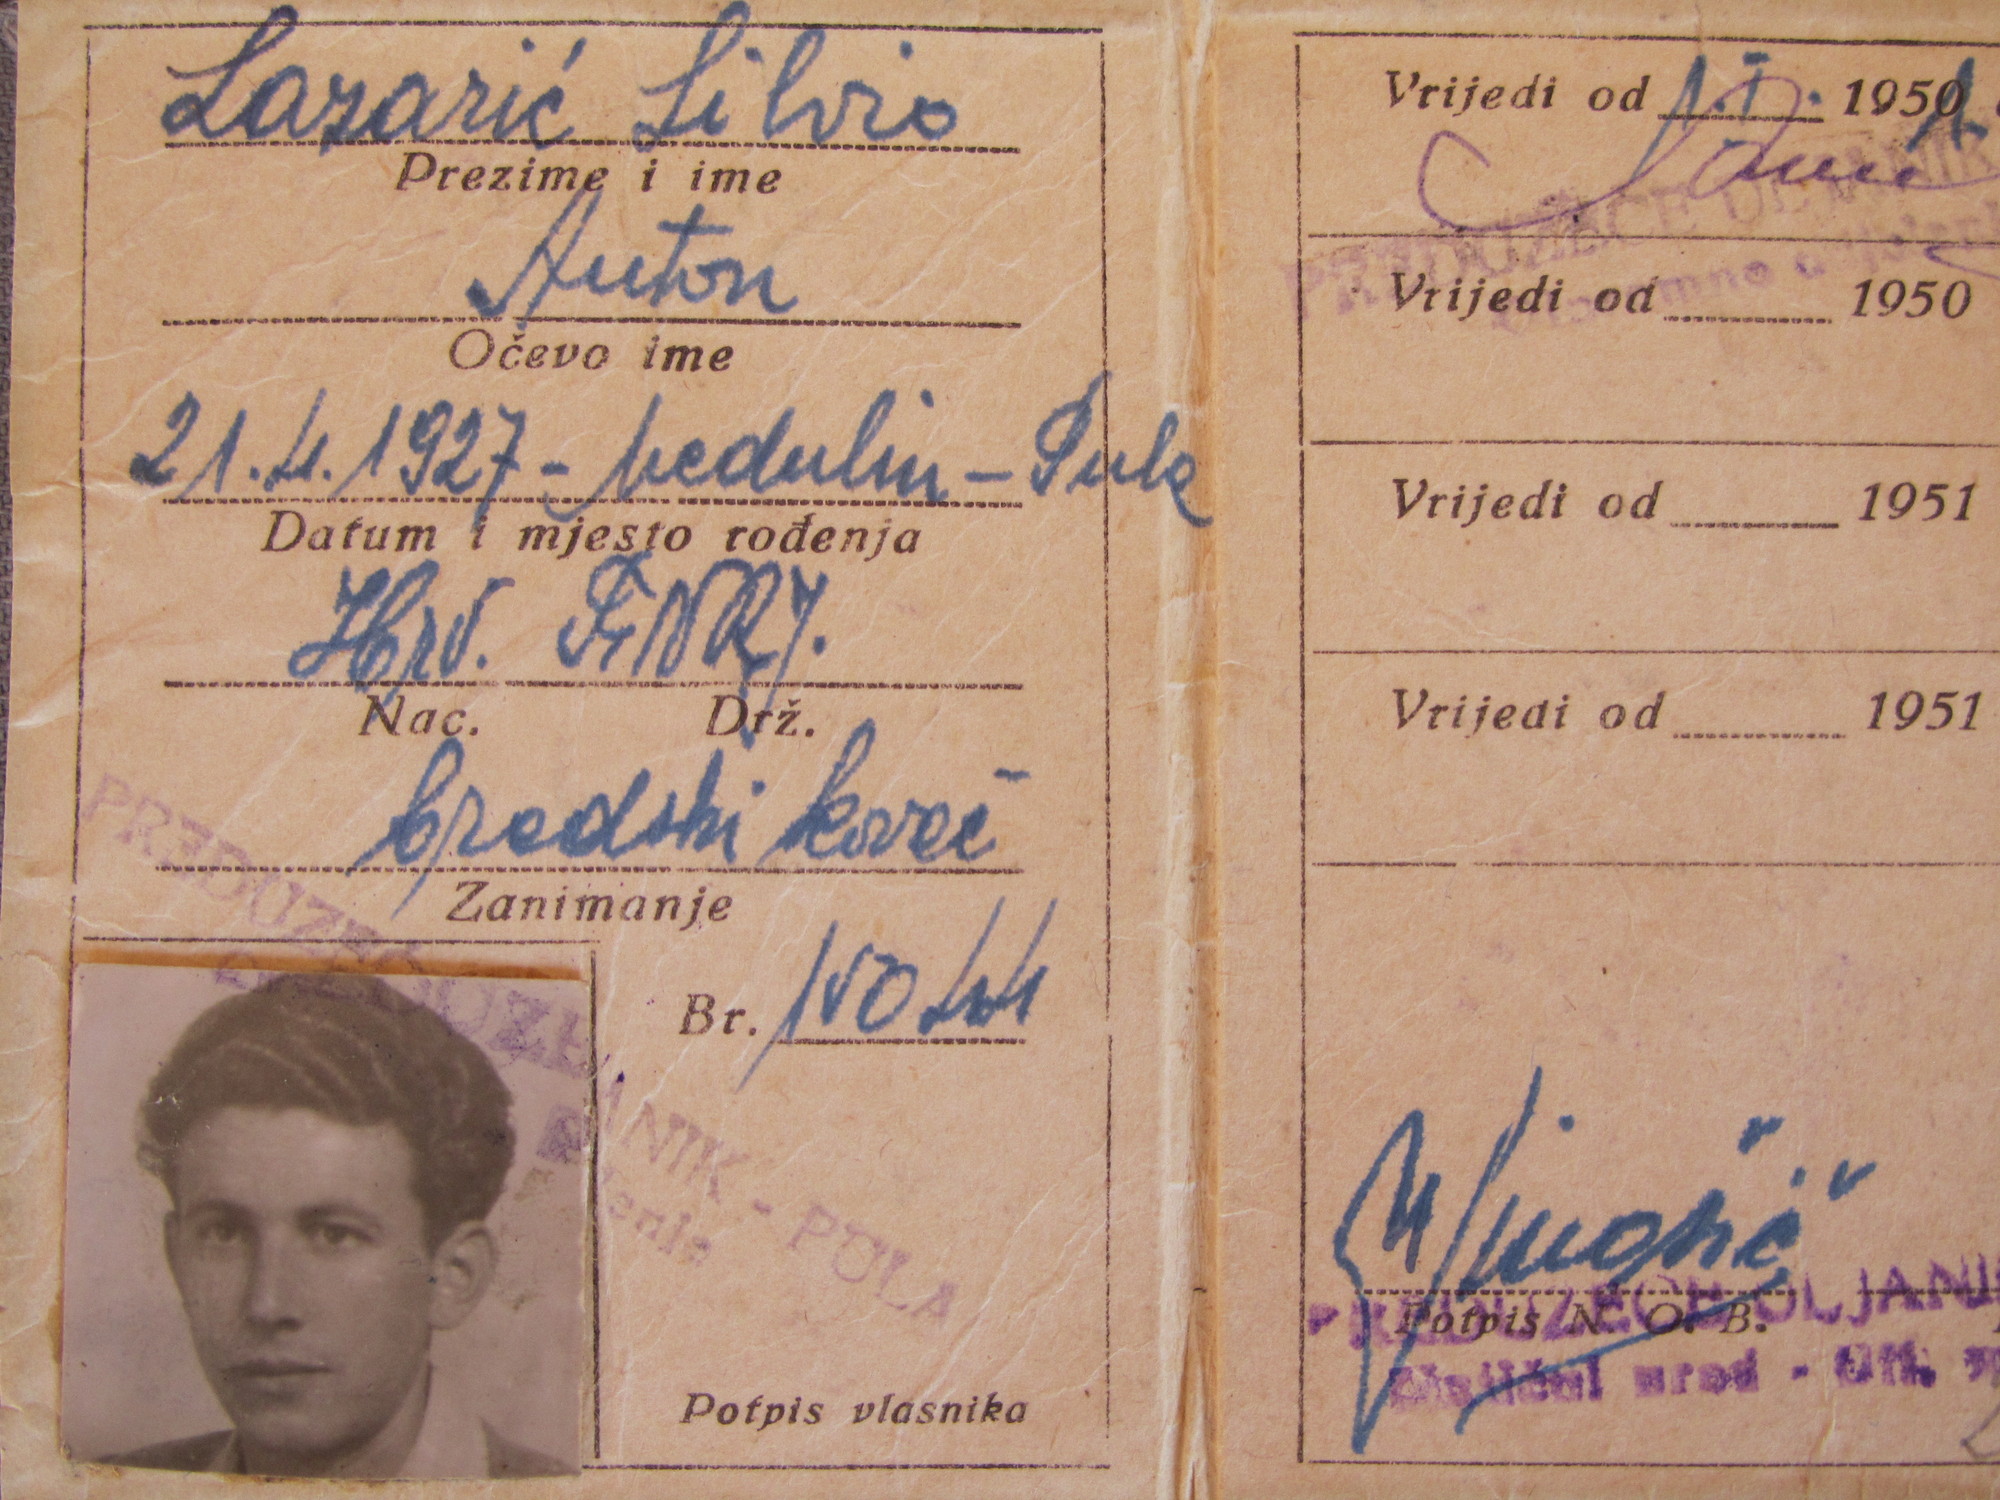 Lazarić Silvio
Prezime i ime
Anton
Očevo ime
21.4.1927 - Medulin - Pula
Datum i mjesto rođenja
Hrv. FNRJ.
Nac. Drž.
brodski kovač
Zanimanje
PREDUZEĆE
Br.
ANIK - PULA
Potpis vlasnika
Vrijedi od 1.I. 1950
PREDUZEĆE ULJANIK
Vrijedi od 1950
Vrijedi od 1951
Vrijedi od 1951
PREDUZEĆE ULJANIK
Potpis N. O. B.